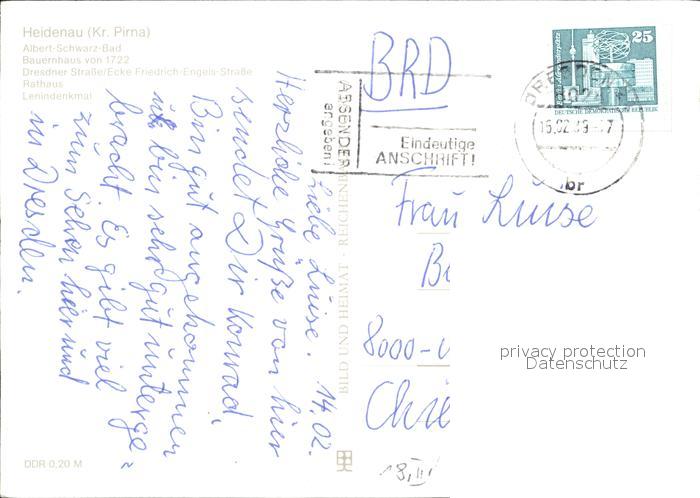 Heidenau (Kr. Pirna)
Albert-Schwarz-Bad
Bauernhaus von 1722
Dresdner Straße/Ecke Friedrich-Engels-Straße
Rathaus
Lenindenkmal
14.02.
Liebe Luise.
Herzliche Grüße von hier
sendet Dir Konrad,
Bin gut angekommen
und bin sehr gut unterge=
bracht Es gibt viel
zum Sehen hier und
in Dresden.
DDR 0,20 M
BILD UND HEIMAT · REICHENB
ABSENDER
angeben!
Eindeutige
ANSCHRIFT!
BRD
25
DEUTSCHE DEMOKRATISCHE REPUBLIK
DRESDEN
br
Frau Luise
8000-
Chie
18.
privacy protection
Datenschutz